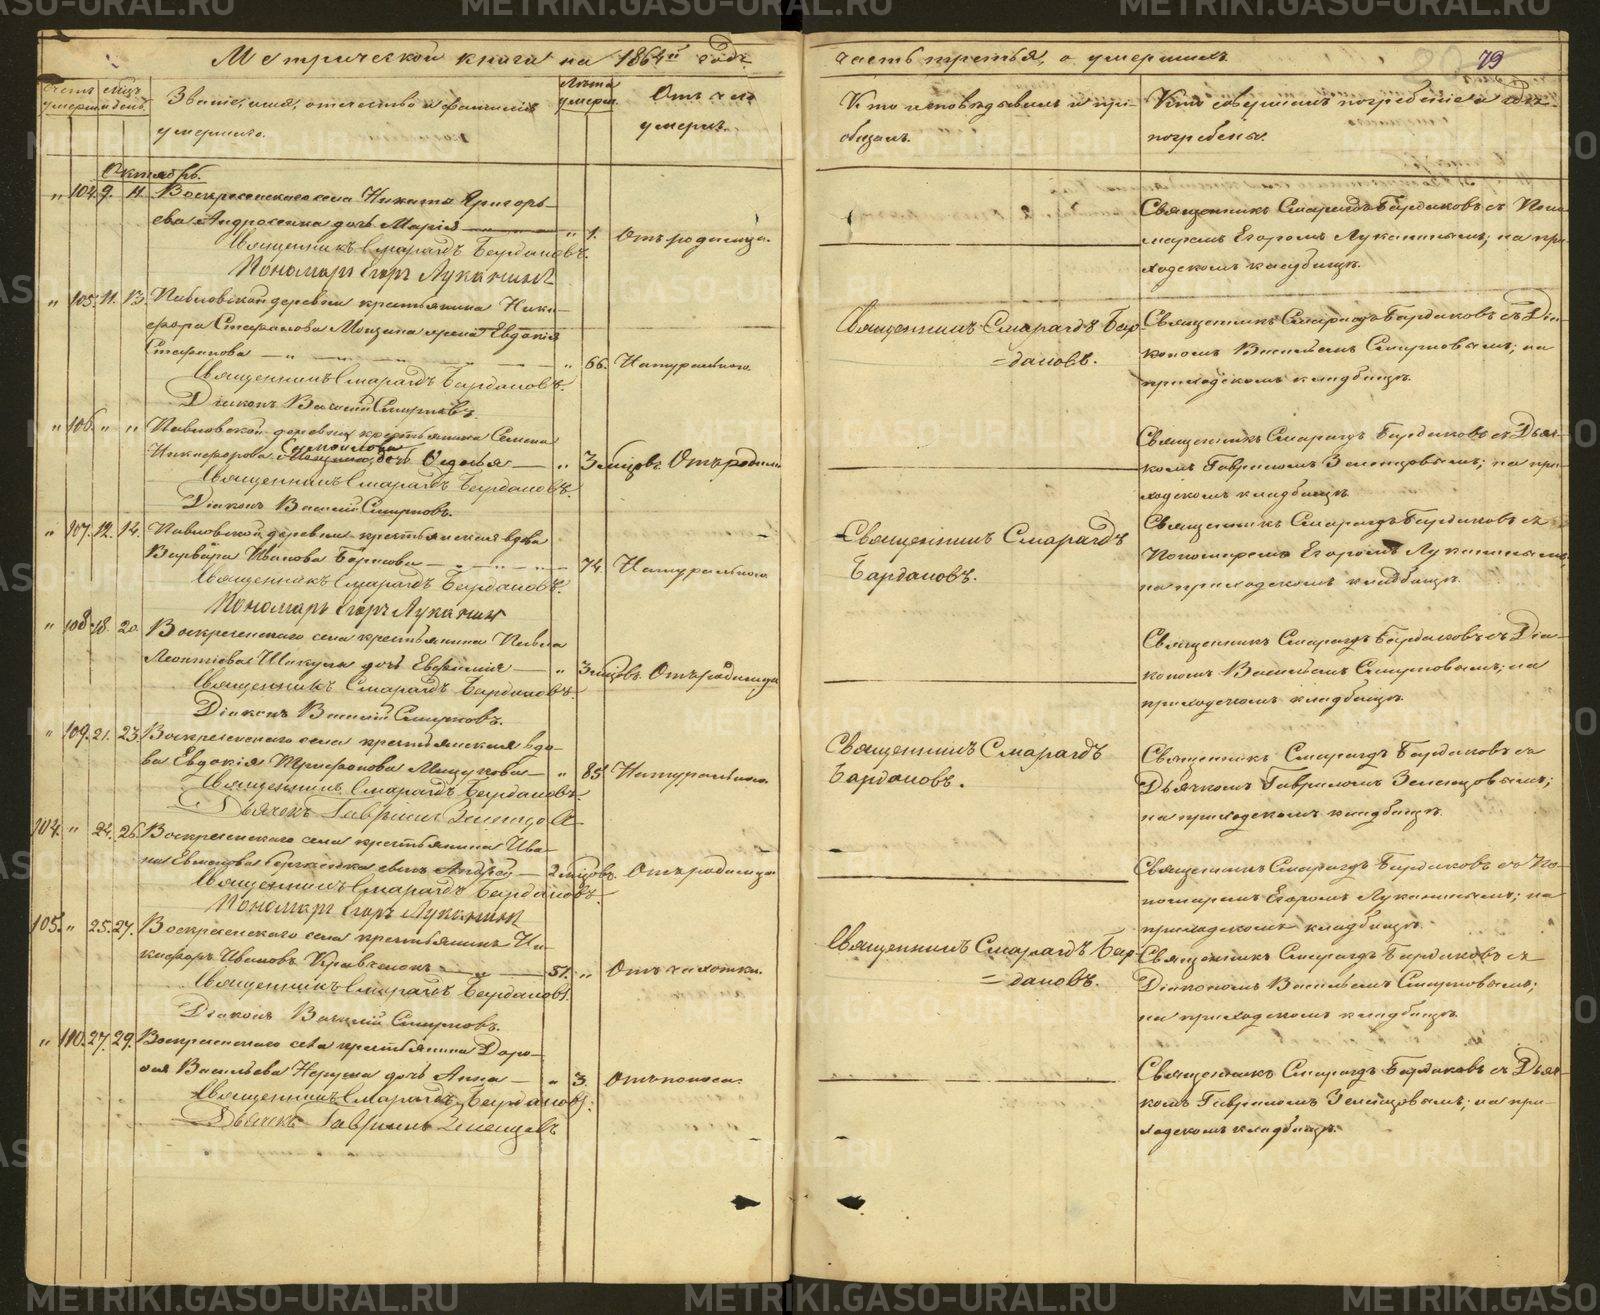 Метрической книги на 1864й годъ
часть третья, о умершихъ
79
Счетъ умерш.
Мѣсяцъ и день.
Званіе, имя, отечество и фамилія
умершаго.
Лѣта умерш.
Отъ чего
умеръ.
Кто исповѣдывалъ и прі-
общалъ.
Кто совершалъ погребеніе и гдѣ
погребены.
Октябрь.
" 104. 9. 11. Воскресенскаго села Никита Григорь-
ева дочь Марія " 1. Отъ родимца.
Священникъ Смарагдъ Бардаковъ.
Пономарь Егоръ Луканинъ
Священникъ Смарагдъ Бардаковъ съ Поно-
маремъ Егоромъ Луканинымъ; на при-
ходскомъ кладбищѣ.
" 105. 11. 13. Павловской деревни крестьянина Ники-
фора Стефанова жена Евдокія
Стефанова " 66. Натурально.
Священникъ Смарагдъ Бардаковъ.
Діаконъ Василій Смирновъ.
Священникъ Смарагдъ Бар-
=даковъ.
Священникъ Смарагдъ Бардаковъ съ Діа-
кономъ Васильемъ Смирновымъ; на
приходскомъ кладбищѣ.
" 106. " " Павловской деревни крестьянина Семена
Никифорова дочь " 3 мѣсяцовъ. Отъ родимца
Священникъ Смарагдъ Бардаковъ.
Діаконъ Василій Смирновъ.
Священникъ Смарагдъ Бардаковъ съ Дьяч-
комъ Гавриломъ Зеленцовымъ; на при-
ходскомъ кладбищѣ
" 107. 12. 14. Павловской деревни крестьянская вдова
Варвара Иванова " 74. Натурально.
Священникъ Смарагдъ Бардаковъ.
Пономарь Егоръ Луканинъ
Священникъ Смарагдъ
Бардаковъ.
Священникъ Смарагдъ Бардаковъ съ
Пономаремъ Егоромъ Луканинымъ;
на приходскомъ кладбищѣ.
" 108. 18. 20. Воскресенскаго села крестьянина Павла
Леонтіева дочь Евфимія " 3 мѣсяцовъ. Отъ родимца
Священникъ Смарагдъ Бардаковъ.
Діаконъ Василій Смирновъ.
Священникъ Смарагдъ Бардаковъ съ Діа-
кономъ Васильемъ Смирновымъ; на
приходскомъ кладбищѣ.
" 109. 21. 23. Воскресенскаго села крестьянская вдо-
ва Евдокія Трифонова " 85. Натурально.
Священникъ Смарагдъ Бардаковъ.
Дьячокъ Гавріилъ Зеленцовъ
Священникъ Смарагдъ
Бардаковъ.
Священникъ Смарагдъ Бардаковъ съ
Дьячкомъ Гавриломъ Зеленцовымъ;
на приходскомъ кладбищѣ.
104. " 24. 26. Воскресенскаго села крестьянина Ива-
на сынъ Андрей 2 мѣсяцовъ. Отъ родимца
Священникъ Смарагдъ Бардаковъ.
Пономарь Егоръ Луканинъ
Священникъ Смарагдъ Бардаковъ съ По-
номаремъ Егоромъ Луканинымъ; на
приходскомъ кладбищѣ.
105. " 25. 27. Воскресенскаго села крестьянинъ Ни-
кифоръ Ивановъ Кравченокъ 51. " Отъ чахотки.
Священникъ Смарагдъ Бардаковъ.
Діаконъ Василій Смирновъ.
Священникъ Смарагдъ Бар-
=даковъ.
Священникъ Смарагдъ Бардаковъ съ
Діакономъ Васильемъ Смирновымъ;
на приходскомъ кладбищѣ.
" 110. 27. 29. Воскресенскаго села крестьянина Доро-
фея Васильева дочь Анна " 3. Отъ поноса.
Священникъ Смарагдъ Бардаковъ.
Дьячекъ Гавріилъ Зеленцовъ
Священникъ Смарагдъ Бардаковъ съ Дьяч-
комъ Гавриломъ Зеленцовымъ; на при-
ходскомъ кладбищѣ.
METRIKI.GASO-URAL.RU